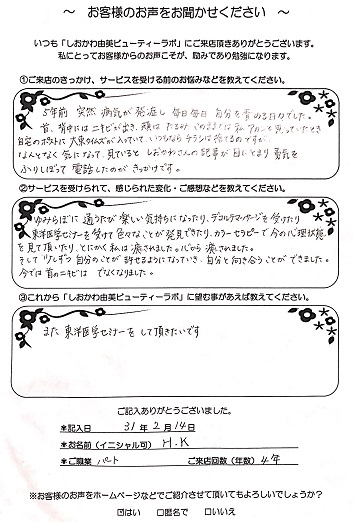 ～ お客様のお声をお聞かせください ～
いつも「しおかわ由美ビューティーラボ」にご来店頂きありがとうございます。
私にとってお客様からのお声こそが、励みであり勉強になります。
①ご来店のきっかけ、サービスを受ける前のお悩みなどを教えてください。
5年前 突然 病気が発症し 毎日毎日 自分を責める日々でした。
首、背中にはニキビが出き、顔は たるみ
自宅のポストに 大東タイムズが入っていて、いつもなら チラシは捨てるのですが
なんとなく 気になって 見ていると しおかわさんの記事が目にとまり 勇気を
ふりしぼって 電話したのが きっかけです。
②サービスを受けられて、感じられた変化・ご感想などを教えてください。
ゆみらぼに 通うたびが楽しい気持ちになったり、デコルテマッサージを受けたり
東洋医学セミナーを受けて色々なことが発見できたり、カラーセラピーで今の心理状態
を見て頂いたり、とにかく私は癒されました。心から癒されました。
そして 少しずつ 自分のことが 許せるようになっていき 自分と向き合うことができました。
今では 首のニキビは でなくなりました。
③これから「しおかわ由美ビューティーラボ」に望む事があれば教えてください。
また 東洋医学セミナーを して頂きたいです
ご記入ありがとうございました。
*記入日 31年2月14日
*お名前(イニシャル可) H.K
*ご職業 パート ご来店回数(年数) 4年
※お客様のお声をホームページなどでご紹介させて頂いてもよろしいでしょうか?
☑はい □匿名で □いいえ